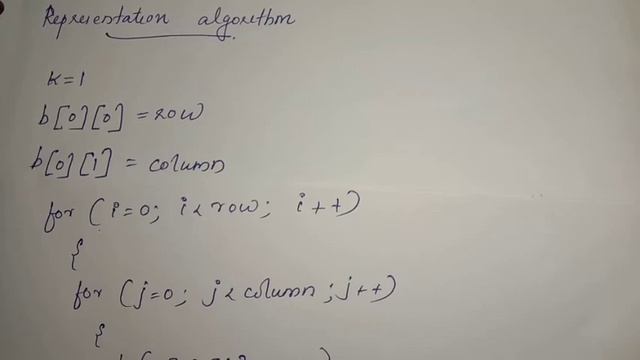 Representation algorithm
k=1
b[0][0] = row
b[0][1] = column
for (i=0; i<row; i++)
{
for (j=0; j<column; j++)
{